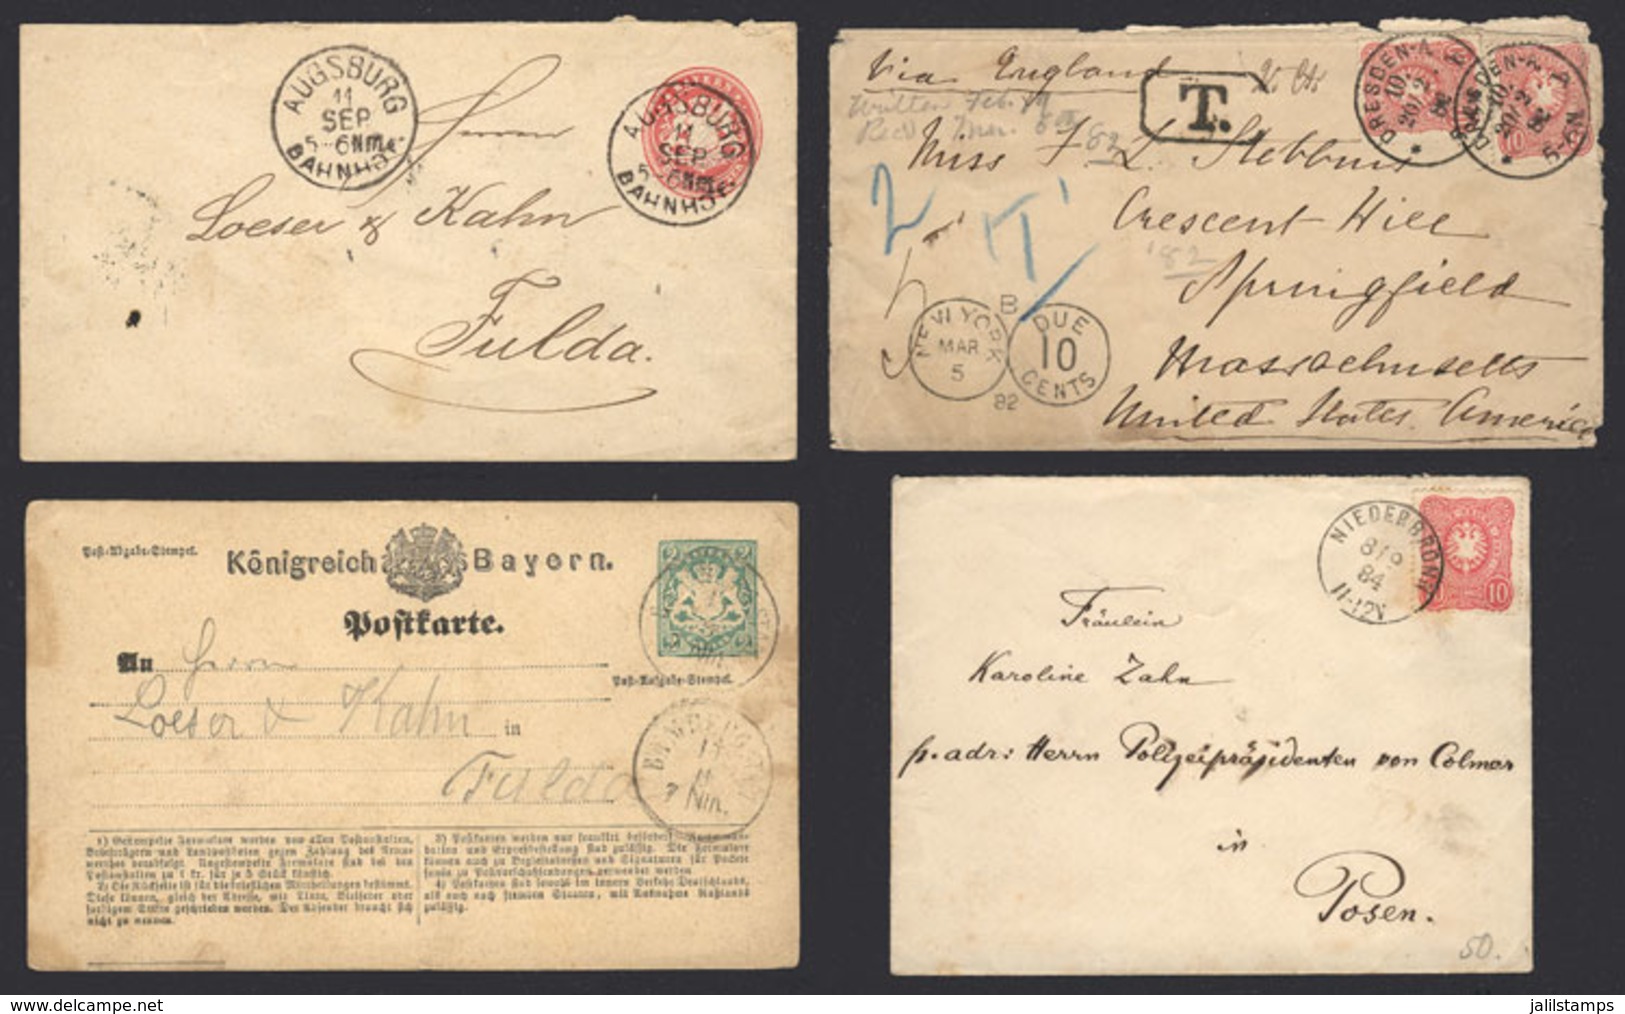 AUGSBURG
11
SEP
5-6Nm.
BAHNHOF
AUGSBURG
11
SEP
5-6Nm.
BAHNHOF
Herrn
Loeser & Kahn
Fulda.
Via England
T.
Written Feb. 19
Recd Mar. 8
82
Miss F L Stebbins
Crescent Hill
'82
Springfield
Massachusetts
United States America
DRESDEN-A.
10.
20/2
82
DRESDEN-A.
10.
20/2
82
5-6N
10
NEW YORK
MAR
5
82
B
DUE
10
CENTS
Post-Abgabe-Stempel.
Königreich Bayern.
Postkarte.
An Herrn
Post-Ausgabe-Stempel.
Loeser & Kahn
in
Fulda
1) Gestempelte Formulare werden von allen Postanstalten,
Briefträgern und Landpostboten gegen Zahlung des Francowerthes verabfolgt. Ungestempelte Formulare sind bei den
Postanstalten zu 1 kr. für je 5 Stück käuflich.
2) Die Rückseite ist für die brieflichen Mittheilungen bestimmt.
Diese können, gleich der Adresse, mit Tinte, Bleifeder oder
farbigem Stifte geschrieben werden. Der Absender braucht sich
nicht zu nennen.
3) Postkarten werden nur frankirt befördert.
können auch zu Begleitadressen und Signaturen für Packete
sowie zu Postvorschußsendungen verwendet werden
4) Postkarten sind sowohl im innern Verkehr Deutschlands,
als auch nach fremden Staaten, mit Ausnahme Rußlands
zulässig.
NIEDERBRONN
84
11-12V
10
Fräulein
Karoline Zahn
p. adr: Herrn Polizeipräsidenten von Colmar
in
Posen.
50.
www.delcampe.net
jalilstamps